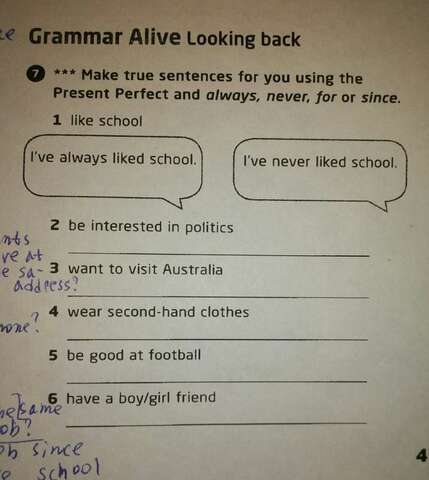 Grammar Alive Looking back
7 *** Make true sentences for you using the
Present Perfect and always, never, for or since.
1 like school
I've always liked school.
I've never liked school.
2 be interested in politics
3 want to visit Australia
address?
4 wear second-hand clothes
5 be good at football
6 have a boy/girl friend
same
since
school
4